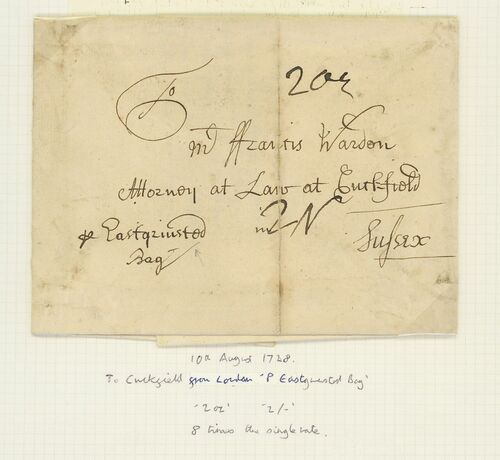 To
2oz
Mr ffrancis Wardon
Attorney at Law at Cuckfield
in
Sussex
p Eastgrinsted
Bag
10th August 1728.
To Cuckfield from London 'P Eastgrinsted Bag'
'2oz' '2/-'
8 times the single rate.